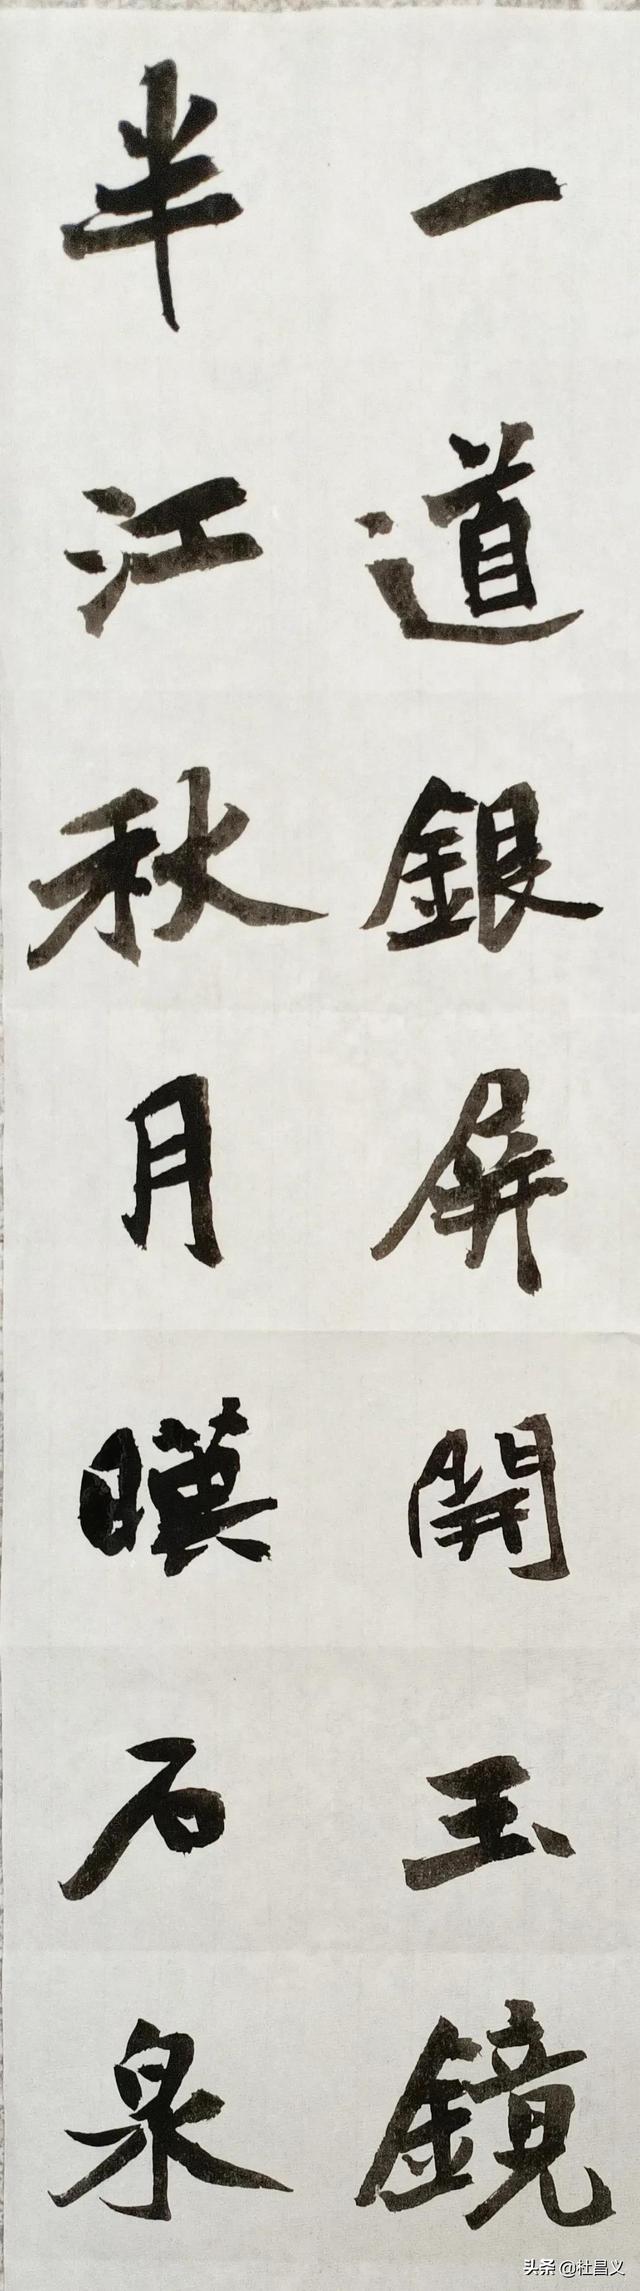 一道銀屏開玉鏡
半江秋月暎石泉
头条 @杜昌义